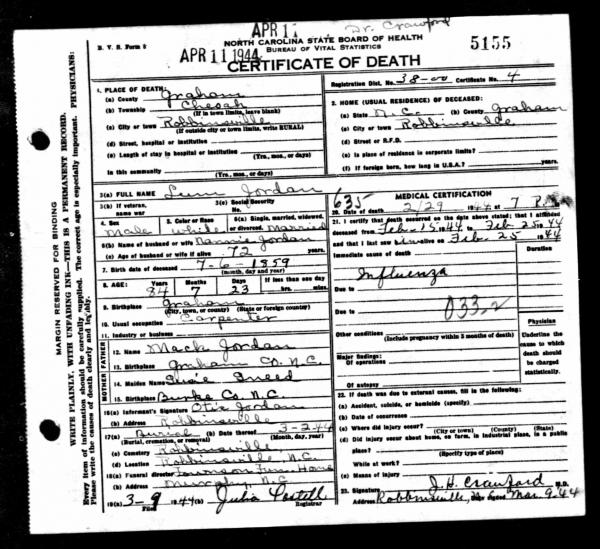 APR 11
Dr. Crawford
B. V. S. Form 8
APR 11 1944
NORTH CAROLINA STATE BOARD OF HEALTH
BUREAU OF VITAL STATISTICS
5155
CERTIFICATE OF DEATH
Registration Dist. No. 38-00 Certificate No. 4
1. PLACE OF DEATH:
(a) County Graham
(b) Township Cheoah
(If in town limits, leave blank)
(c) City or town Robbinsville
(If outside city or town limits, write RURAL)
(d) Street, hospital or institution
(e) Length of stay in hospital or institution
(Yrs., mos., or days)
In this community
(Yrs., mos., or days)
2. HOME (USUAL RESIDENCE) OF DECEASED:
(a) State N.C. (b) County Graham
(c) City or town Robbinsville
(d) Street or R.F.D.
(e) Is place of residence in corporate limits?
(f) If foreign born, how long in U.S.A.? (Years)
3(a) FULL NAME Jordan
3(b) If veteran, name war
3(c) Social Security No.
4. Sex Male
5. Color or Race White
6(a) Single, married, widowed, or divorced. Married
6(b) Name of husband or wife Nannie Jordan
(c) Age of husband or wife if alive 72 years
7. Birth date of deceased 7-6-1859
(month, day and year)
8. AGE: Years 84 Months 7 Days 23 If less than one day hrs. min.
9. Birthplace Graham
(City, town, or county) (State or foreign country)
10. Usual occupation Carpenter
11. Industry or business
FATHER
12. Name Mack Jordan
13. Birthplace Graham Co. N.C.
MOTHER
14. Maiden Name Breed
15. Birthplace Burke Co. N.C.
16(a) Informant's Signature Jordan
(b) Address Robbinsville
17(a) Burial (b) Date thereof 3-2-44
(Burial, cremation, or removal) (Month, day, year)
(c) Cemetery Robbinsville
(d) Location Robbinsville N.C.
18(a) Funeral director Townson Fun. Home
(b) Address Murphy, N.C.
19(a) 3-9 1944 (b) Julia Costell
Filed Registrar
635
MEDICAL CERTIFICATION
20. Date of death 2/29 1944 at 7 P.M.
21. I certify that death occurred on the date above stated; that I attended
deceased from Feb. 15 1944 to Feb 25 1944
and that I last saw him alive on Feb. 25 1944
Immediate cause of death
Duration
Influenza
Due to
Due to
033.2
Other conditions
(Include pregnancy within 3 months of death)
Physician
Underline the cause to which death should be charged statistically.
Major findings:
Of operations
Of autopsy
22. If death was due to external causes, fill in the following:
(a) Accident, suicide, or homicide (specify)
(b) Date of occurrence
(c) Where did injury occur?
(City or town) (County) (State)
(d) Did injury occur about home, on farm, in industrial place, in a public
place?
(Specify type of place)
While at work?
(e) Means of injury
23. Signature J. H. Crawford M.D.
Address Robbinsville, Date signed Mar. 9-44
MARGIN RESERVED FOR BINDING
WRITE PLAINLY, WITH UNFADING INK—THIS IS A PERMANENT RECORD. PHYSICIANS:
Every item of information should be carefully supplied. The correct age is especially important.
Please write the causes of death clearly and legibly.